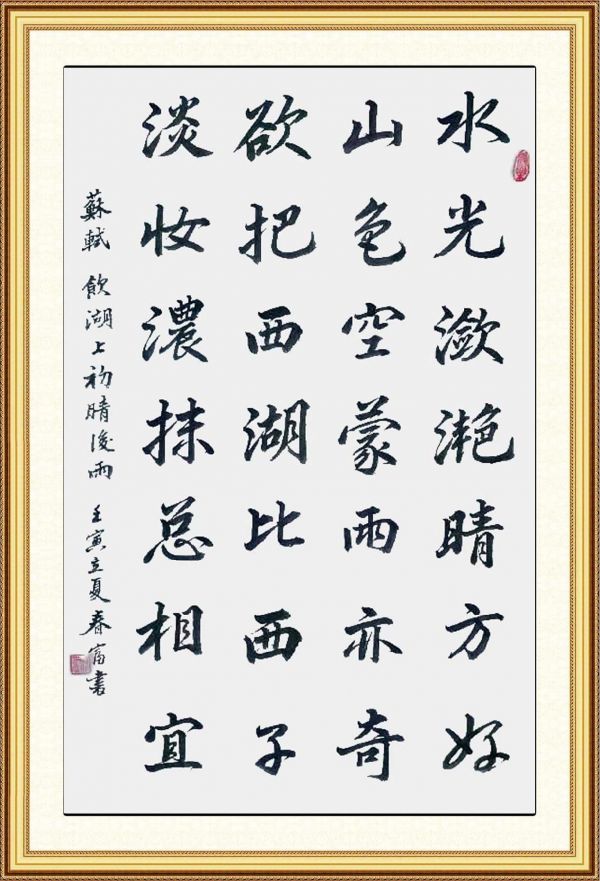 水光潋滟晴方好
山色空蒙雨亦奇
欲把西湖比西子
淡妆濃抹总相宜
蘇軾 飲湖上初晴後雨 壬寅立夏春富書